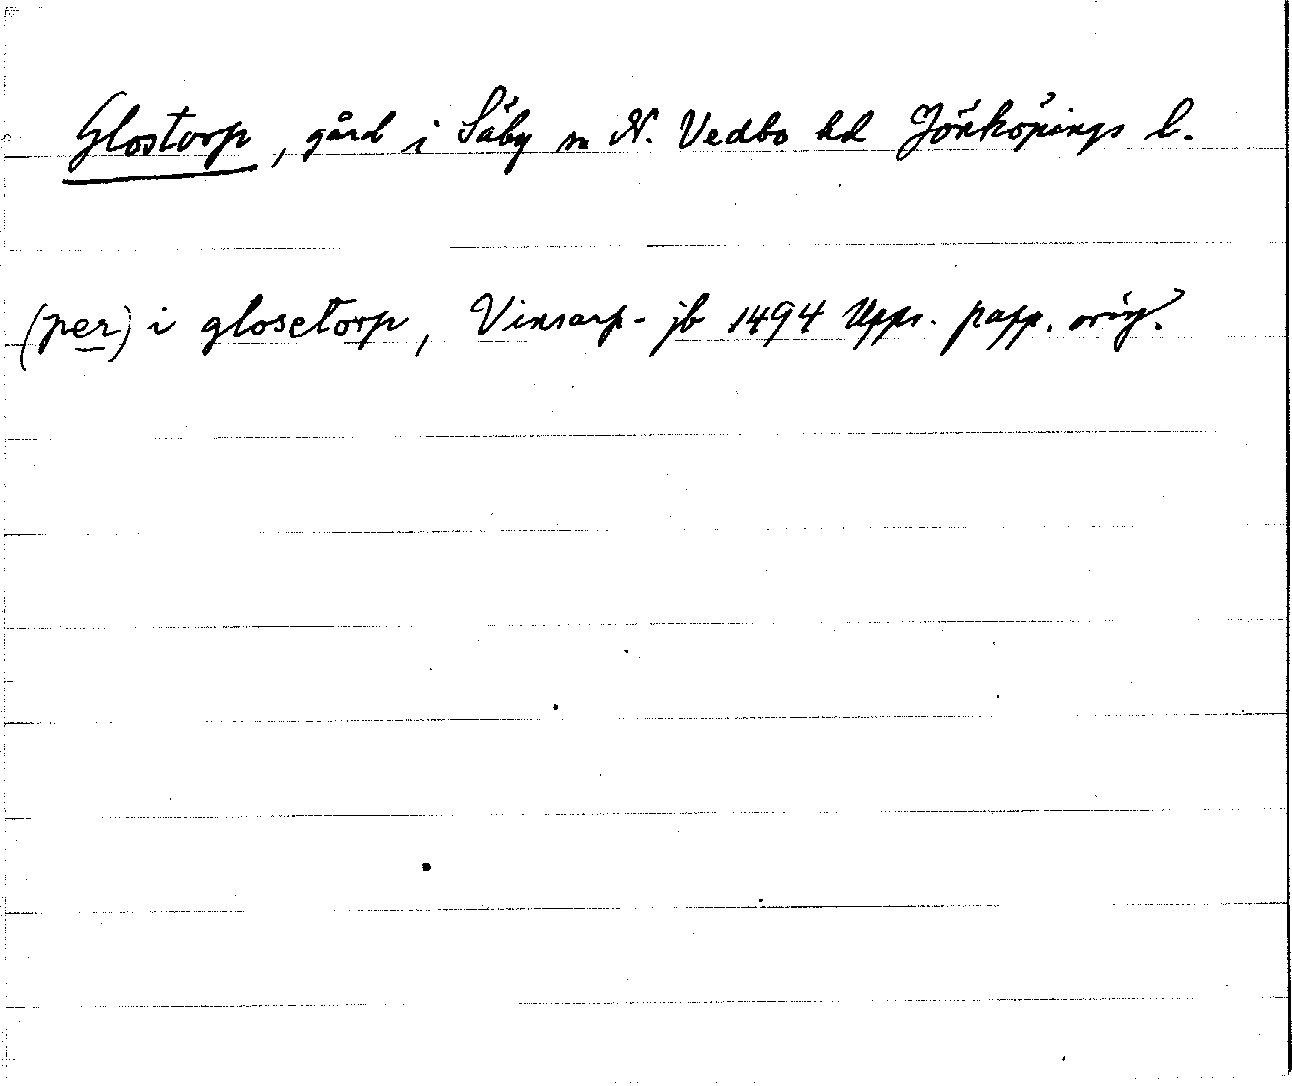 Glostorp, gård i Säby sn N. Vedbo hd Jönköpings l.
(per) i glosetorp, Vinsarp-jb 1494 Upps. papp. orig.